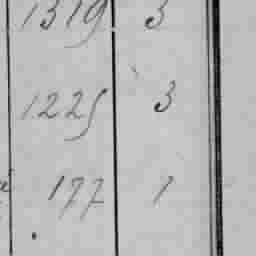 1319 3
1225 3
177 1